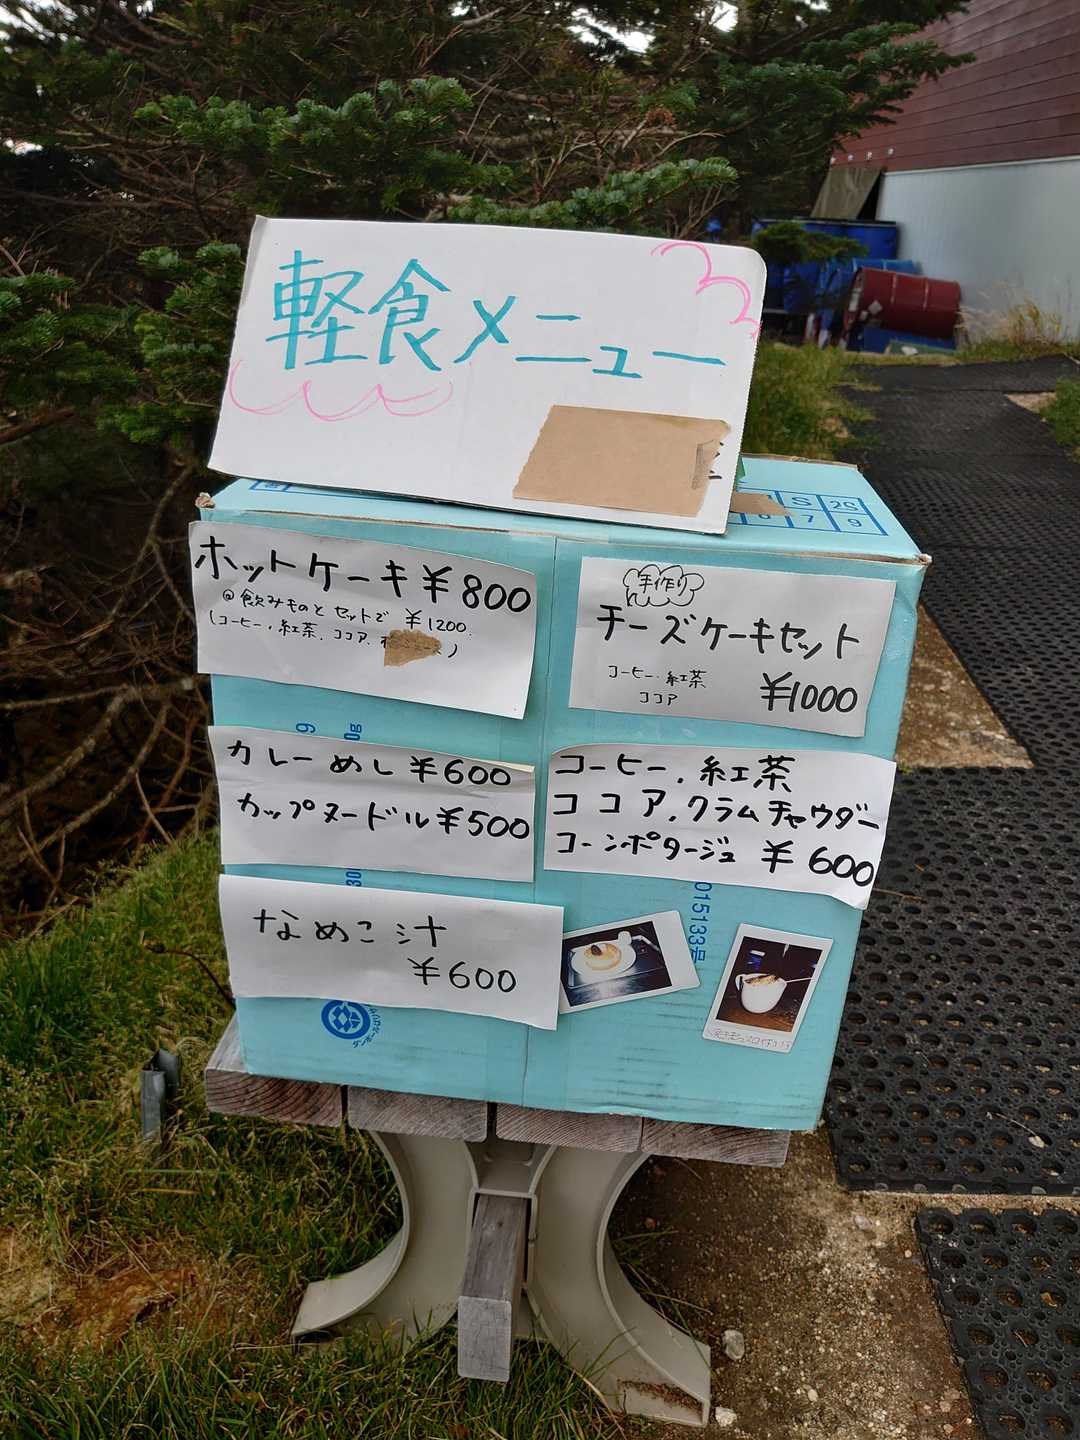 軽食メニュー
S 2S
6 7 9
ホットケーキ ¥800
@飲みものとセットで ¥1200
(コーヒー, 紅茶, ココア,
手作り
チーズケーキセット
コーヒー・紅茶
ココア
¥1000
カレーめし ¥600
カップヌードル ¥500
コーヒー, 紅茶
ココア, クラムチャウダー
コーンポタージュ ¥600
なめこ汁
¥600
015133号
ダンボール